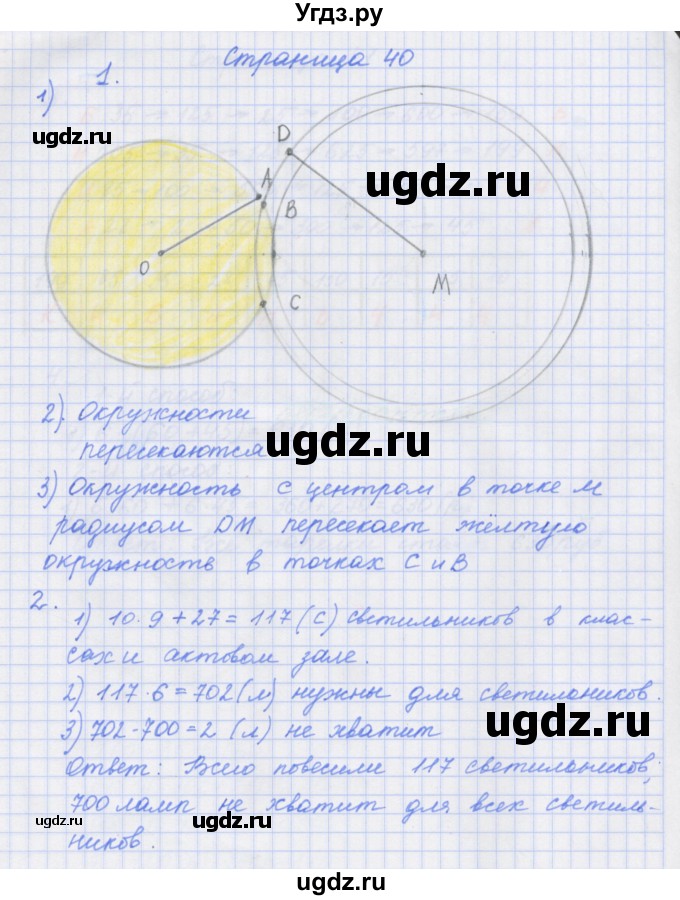 Угдз.ру
Страница 40
1.
1)
ugdz.ru
D
A
ugdz.ru
B
O
M
C
ugdz.ru
2). Окружности
ugdz.ru
пересекаются
3) Окружность с центром в точке М
радиусом DM пересекает жёлтую
окружность в точках С и В
2.
1) 10·9+27=117(С) светильников в клас-
сах и актовом зале.
2) 117·6=702(л) нужны для светилоников.
ugdz.ru
3) 702-700=2 (л) не хватит
Ответ: Всего повесили 117 светильников;
700 ламп не хватит для всех светиль-
ugdz.ru
ugdz.ru
ugdz.ru
ников.
ugdz.ru